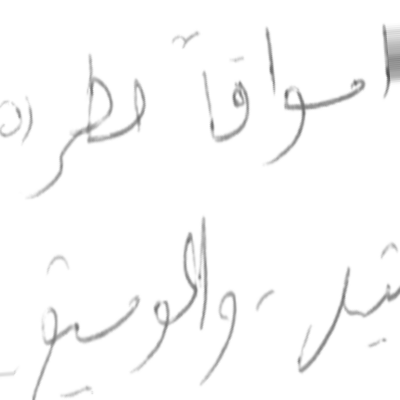 اسواقاً لطر
ثيل، والموسيقى